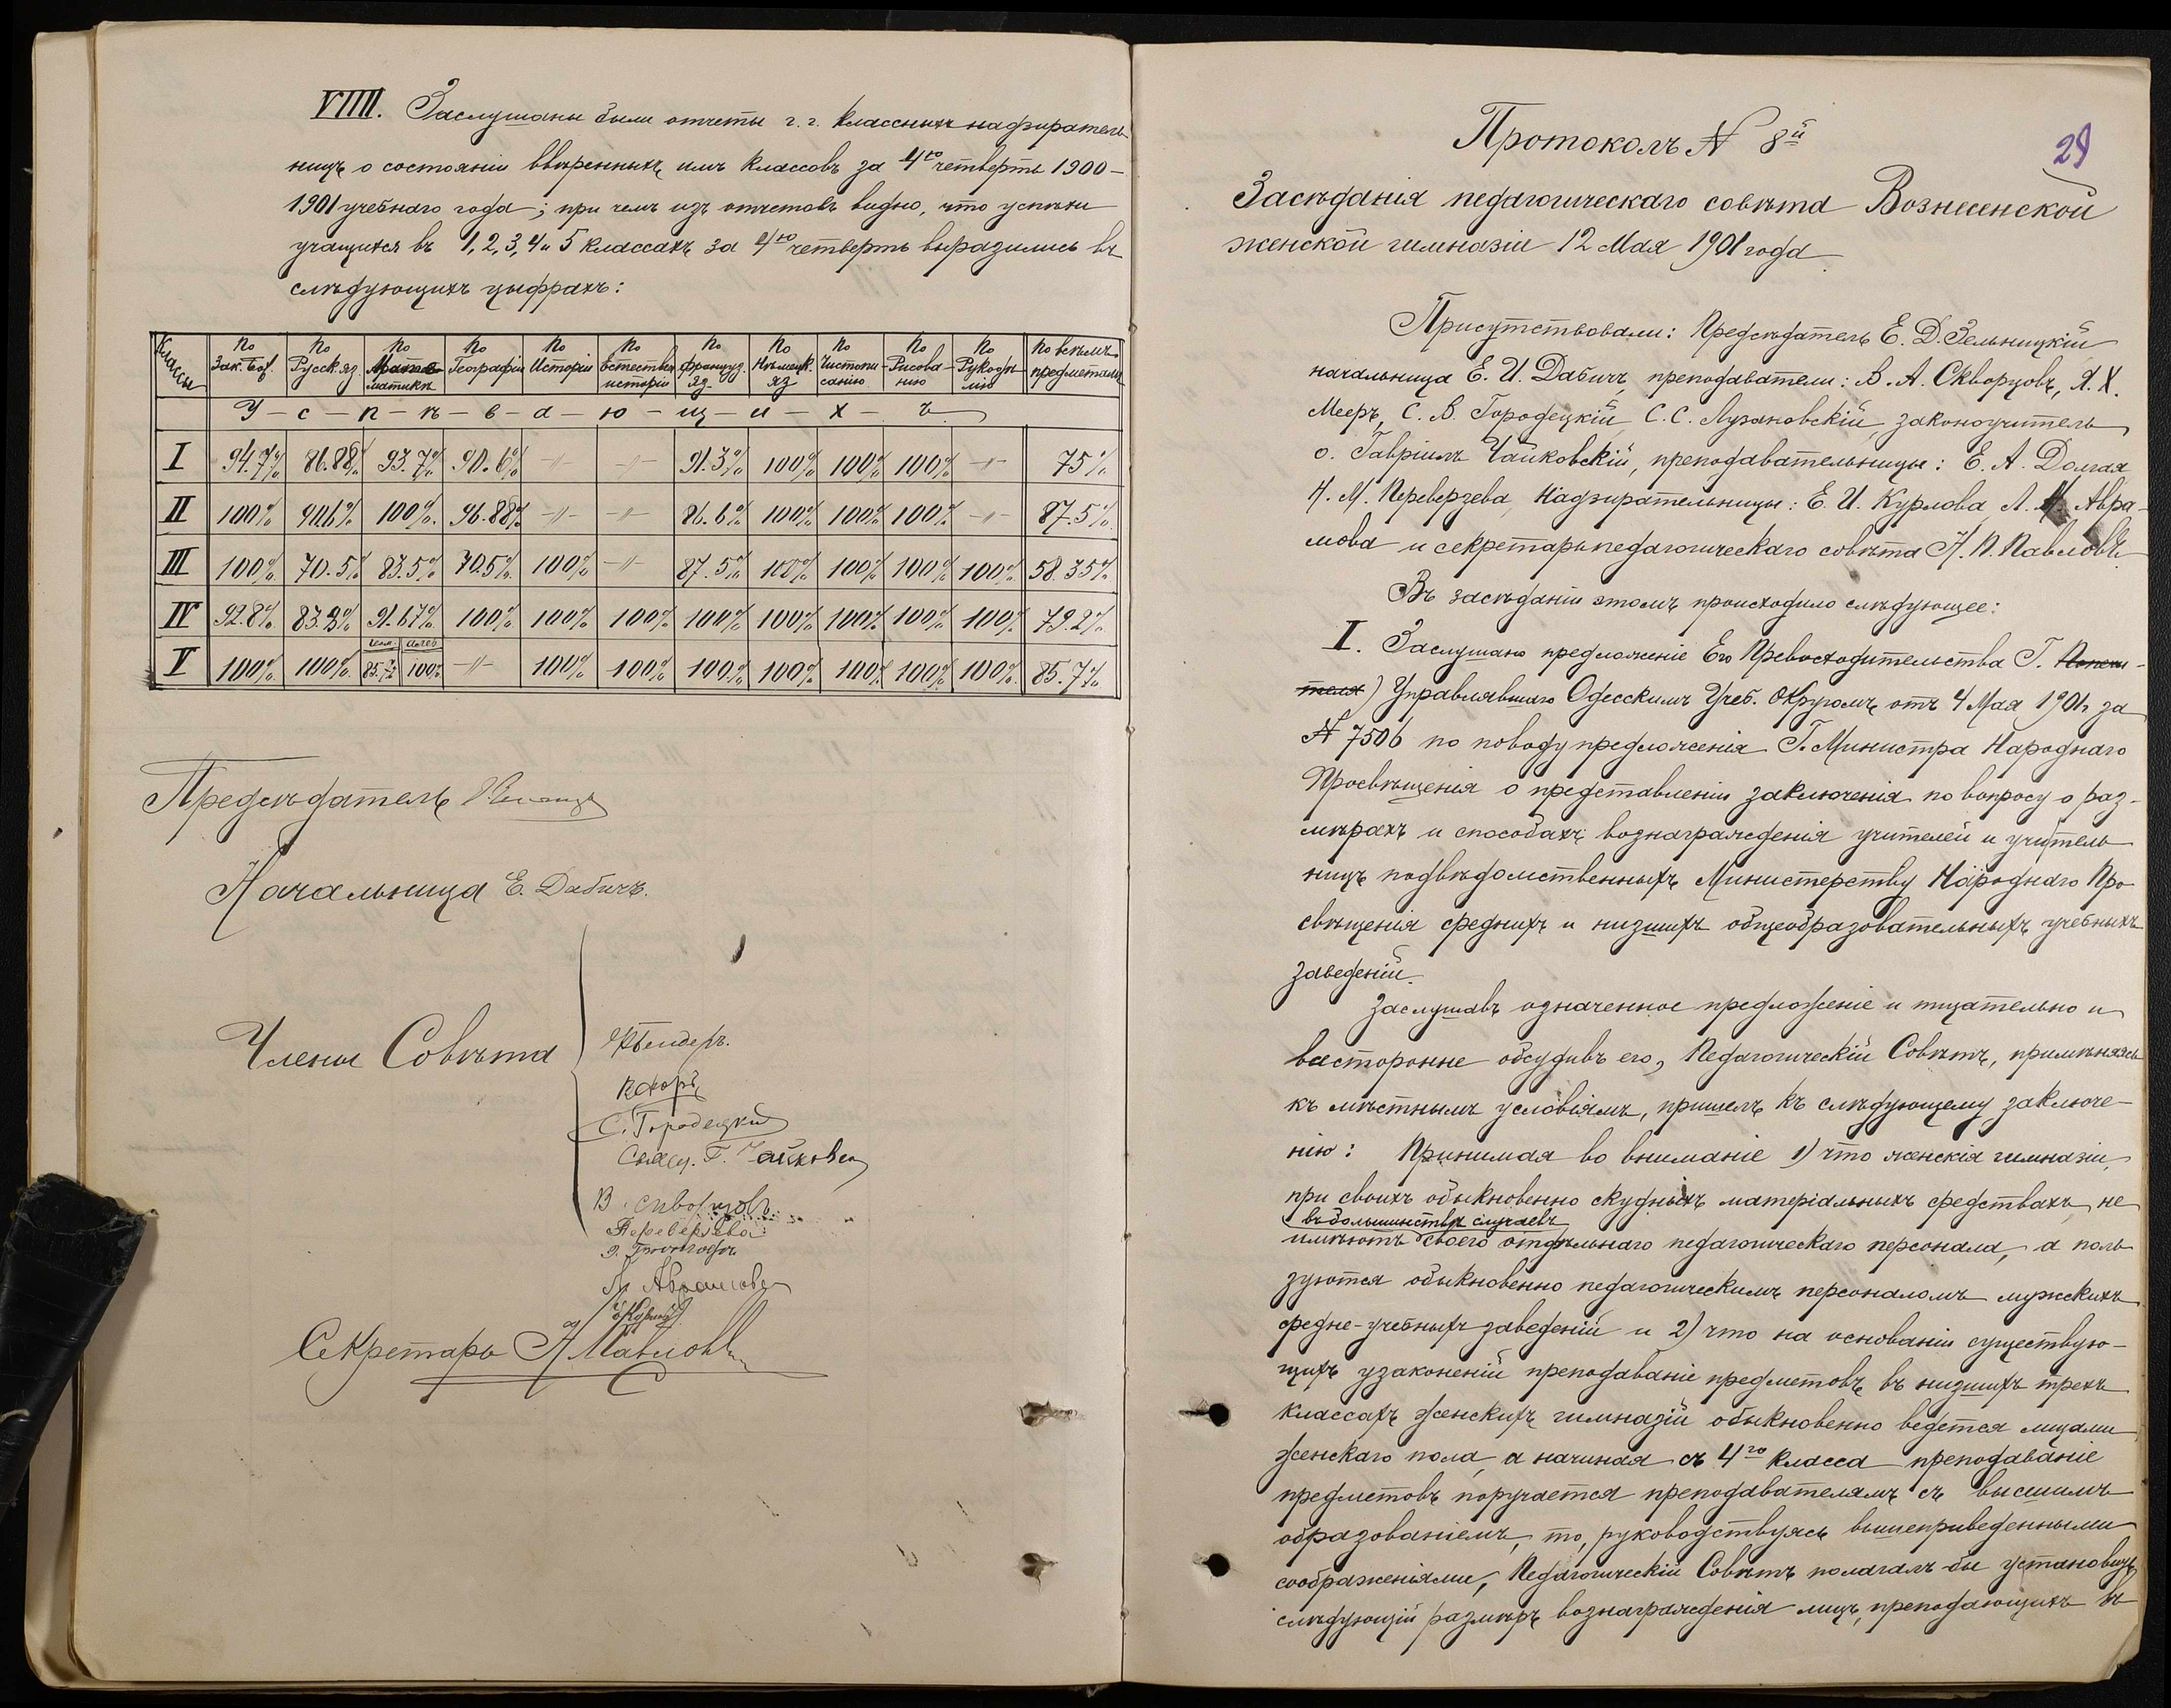 VIIII. Заслушаны были отчеты г. г. классныхъ надзиратель
ницъ о состояніи ввѣренныхъ имъ классовъ за 4ю четверть 1900–
1901 учебнаго года; при чемъ изъ отчетовъ видно, что успѣхи
учащихся въ 1, 2, 3, 4 и 5 классахъ за 4ю четверть выразились въ
слѣдующихъ цыфрахъ:
Классы | По Зак. Бож. | По Русск. яз. | По Математикѣ | По Географіи | По Исторіи | По Естествен. исторіи | По Француз. яз. | По Нѣмецк. яз | По Чистописанію | По Рисованію | По Рукодѣлію | По всѣмъ предметамъ
У – с – п – ѣ – в – а – ю – щ – и – х – ъ
I | 94.7% | 86.88% | 93.7% | 90.6% | –〃– | –〃– | 91.3% | 100% | 100% | 100% | –〃– | 75%
II | 100% | 90.6% | 100%. | 96.88% | –〃– | –〃– | 86.6% | 100% | 100% | 100% | –〃– | 87.5%
III | 100% | 70.5% | 83.5% | 70.5% | 100% | –〃– | 87.5% | 100% | 100% | 100% | 100% | 58.35%
IV | 92.8% | 83.3% | 91.67% | 100% | 100% | 100% | 100% | 100% | 100% | 100% | 100% | 79.2%
V | 100% | 100% | 85.7% | 100% | –〃– | 100% | 100% | 100% | 100% | 100% | 100% | 100% | 85.7%
Предсѣдатель
Начальница Е. Дабичъ.
Члены Совѣта
С. Городецкій
Свящ. Г. Чайковскій
В. Скворцовъ
Переверзева
Л. Аврамова
Секретарь А Павловъ
29
Протоколъ № 8й
Засѣданія педагогическаго совѣта Вознесенской
женской гимназіи 12 Мая 1901 года.
Присутствовали: Предсѣдатель Е. Д. Зельницкій
начальница Е. И. Дабичъ, преподаватели: В. А. Скворцовъ, Я. Х.
Мееръ, С. В. Городецкій, С. С. Лузановскій, законоучитель
о. Гавріилъ Чайковскій, преподавательницы: Е. А. Долгая
Н. М. Переверзева, Надзирательницы: Е. И. Курлова Л. Н. Авра-
мова и секретарь педагогическаго совѣта А. П. Павловъ.
Въ засѣданіи этомъ происходило слѣдующее:
I. Заслушано предложеніе Его Превосходительства Г. Попечи-
теля) Управлявшаго Одесскимъ Учеб. Округомъ, отъ 4 Мая 1901г за
№ 7506 по поводу предложенія Г. Министра Народнаго
Просвѣщенія о представленіи заключенія по вопросу о раз-
мѣрахъ и способахъ вознагражденія учителей и учитель
ницъ подвѣдомственныхъ Министерству Народнаго Про
свѣщенія среднихъ и низшихъ общеобразовательныхъ учебныхъ
заведеній.
Заслушавъ означенное предложеніе и тщательно и
всесторонне обсудивъ его, Педагогическій Совѣтъ, примѣняясь
къ мѣстнымъ условіямъ, пришелъ къ слѣдующему заключе-
нію: Принимая во вниманіе 1) что женскія гимназіи,
при своихъ обыкновенно скудныхъ матеріальныхъ средствахъ, не
въ большинствѣ случаевъ
имѣютъ своего отдѣльнаго педагогическаго персонала, а поль
зуются обыкновенно педагогическимъ персоналомъ мужскихъ
средне-учебныхъ заведеній и 2) что на основаніи существую-
щихъ узаконеній преподаваніе предметовъ въ низшихъ трехъ
классахъ женскихъ гимназій обыкновенно ведется лицами
женскаго пола, а начиная съ 4го класса преподаваніе
предметовъ поручается преподавателямъ съ высшимъ
образованіемъ, то, руководствуясь вышеприведенными
соображеніями, Педагогическій Совѣтъ полагалъ-бы установить
слѣдующій размѣръ вознагражденія лицъ, преподающихъ въ